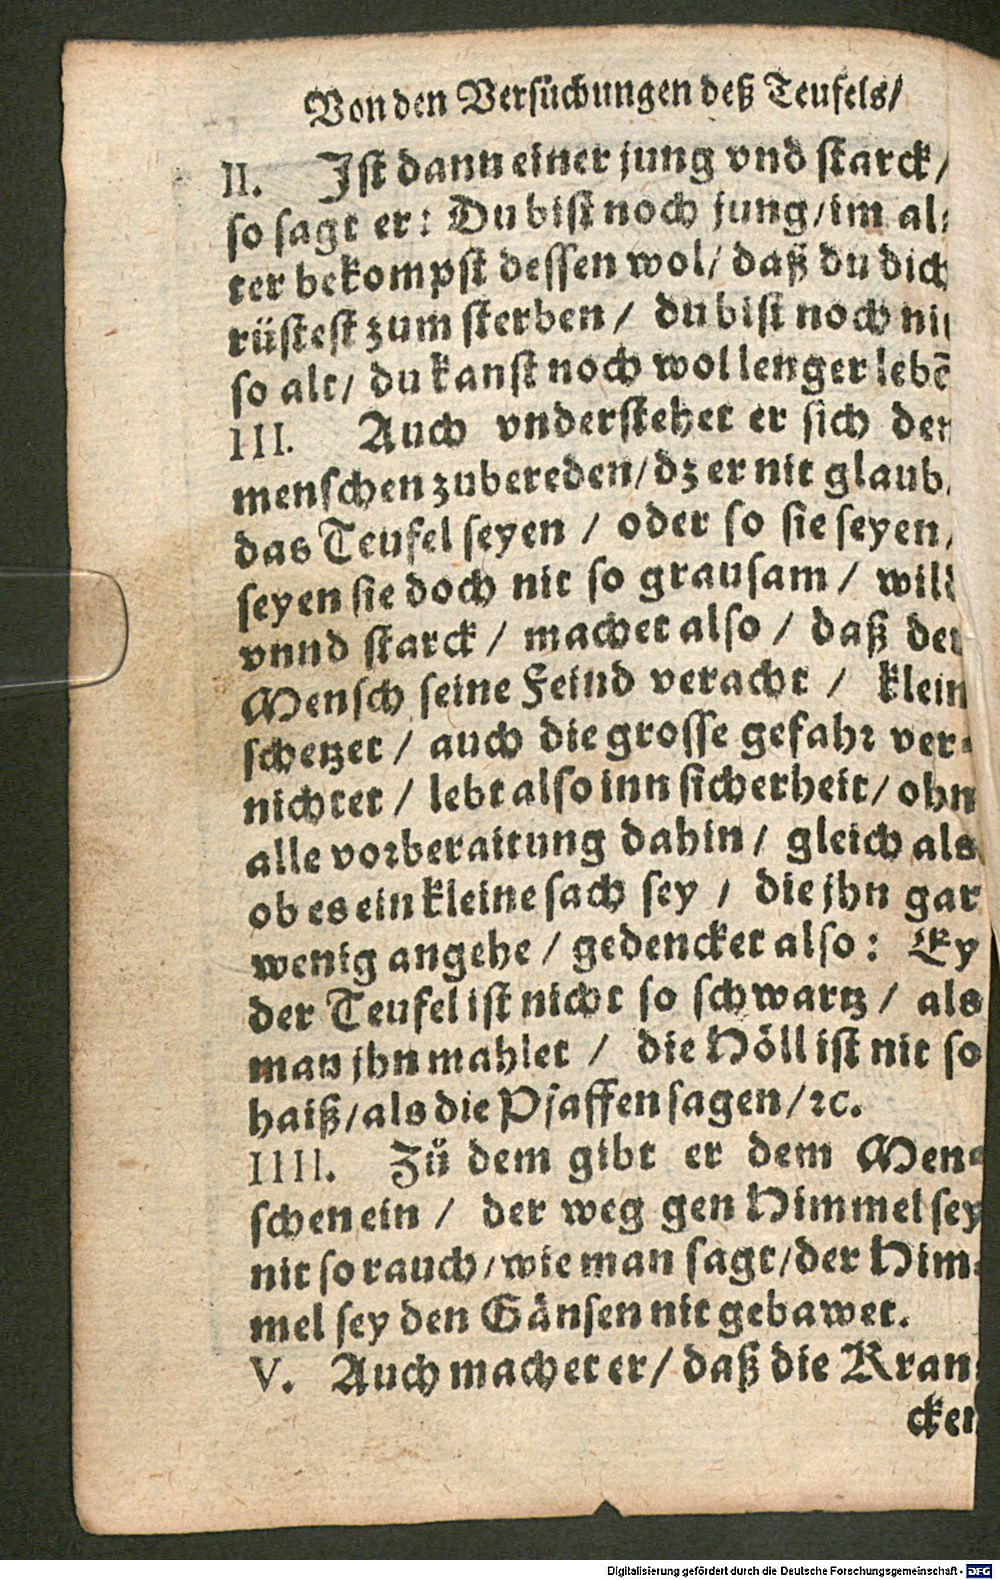 Von den Versüchungen deß Teufels/
II. Ist dann einer jung vnd starck/
so sagt er: Du bist noch jung/im al⸗
ter bekompst dessen wol/ daß du dich
rüstest zum sterben/ du bist noch nit
so alt/ du kanst noch wol lenger lebē
III. Auch vnderstehet er sich den
menschen zubereden/dz er nit glaub,
das Teufel seyen / oder so sie seyen,
seyen sie doch nit so grausam/ wild
vnnd starck/ machet also/ daß der
Mensch seine Feind veracht / klein
schetzet/ auch die grosse gefahr ver⸗
nichtet/ lebt also inn sicherheit/ ohn
alle vorberaitung dahin/ gleich als
ob es ein kleine sach sey / die jhn gar
wenig angehe/ gedencket also: Ey
der Teufel ist nicht so schwartz/ als
man jhn mahlet / die Höll ist nit so
haiß/als die Pfaffen sagen/ꝛc.
IIII. Zü dem gibt er dem Men⸗
schen ein/ der weg gen Himmel sey
nit so rauch/wie man sagt/der Him⸗
mel sey den Gänsen nit gebawet.
V. Auch machet er/ daß die Kran⸗
cken
Digitalisierung gefördert durch die Deutsche Forschungsgemeinschaft - DFG